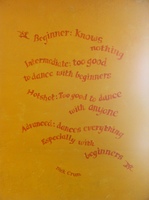 Beginner: Knows
nothing
Intermediate: too good
to dance with beginners
Hotshot: Too good to dance
with anyone
Advanced: dances everything
Especially with
beginners